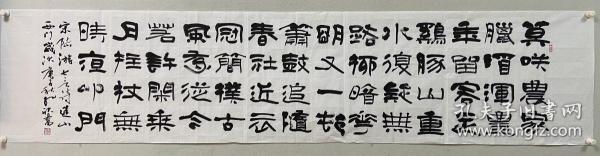 莫咲農家
臘酒渾豐
年留客足
鷄豚山重
水復疑無
路柳暗花
明又一邨
簫鼓追隨
春社近衣
冠簡樸古
風存從今
若許閑乘
月拄杖無
時夜叩門
宋陸游七言詩遊山
西邨歲次庚
孔夫子旧书网
kongfz.com